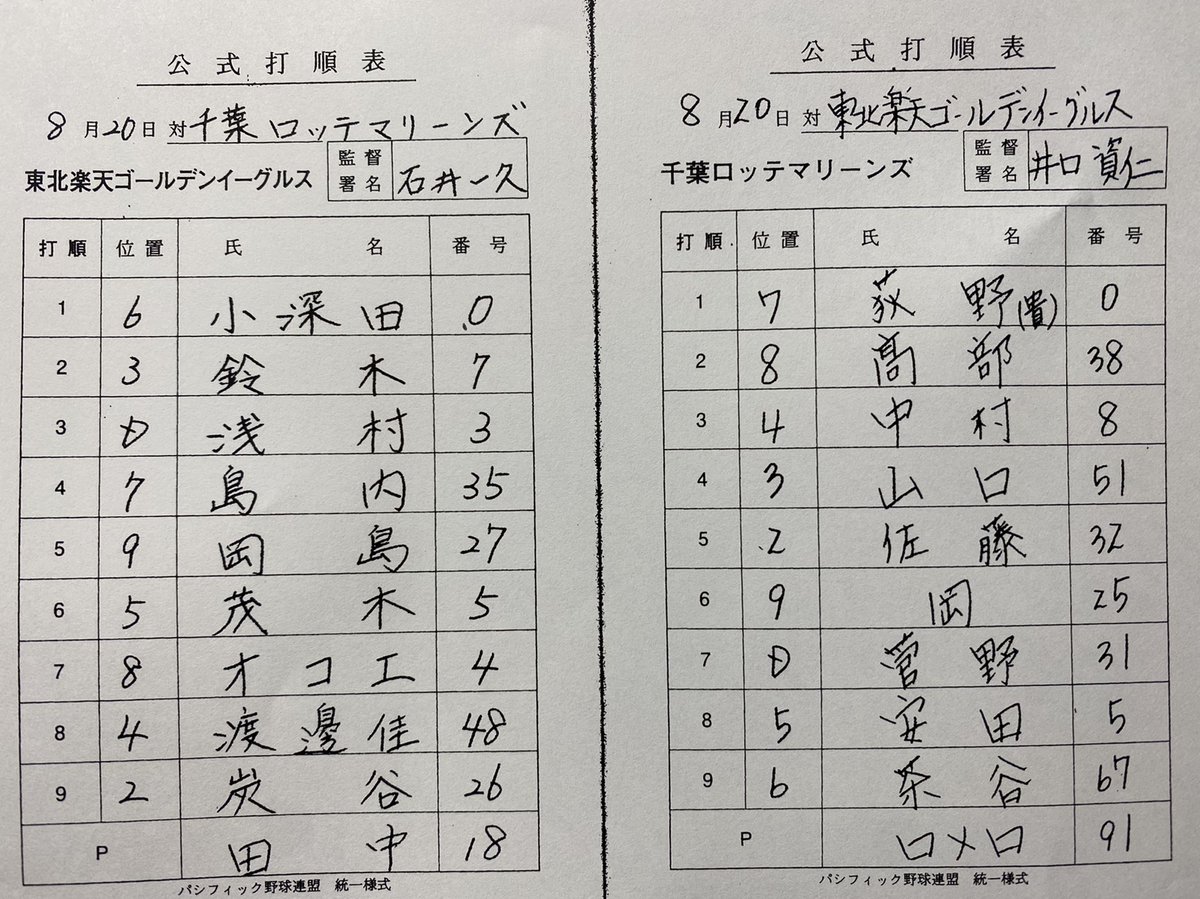 公式打順表
8月20日 対 千葉ロッテマリーンズ
東北楽天ゴールデンイーグルス 監督署名 石井一久
打順 位置 氏名 番号
1 6 小深田 0
2 3 鈴木 7
3 D 浅村 3
4 7 島内 35
5 9 岡島 27
6 5 茂木 5
7 8 オコエ 4
8 4 渡邊佳 48
9 2 炭谷 26
P 田中 18
パシフィック野球連盟 統一様式
公式打順表
8月20日 対 東北楽天ゴールデンイーグルス
千葉ロッテマリーンズ 監督署名 井口資仁
打順 位置 氏名 番号
1 7 荻野(貴) 0
2 8 髙部 38
3 4 中村 8
4 3 山口 51
5 2 佐藤 32
6 9 岡 25
7 D 菅野 31
8 5 安田 5
9 6 茶谷 67
P ロメロ 91
パシフィック野球連盟 統一様式